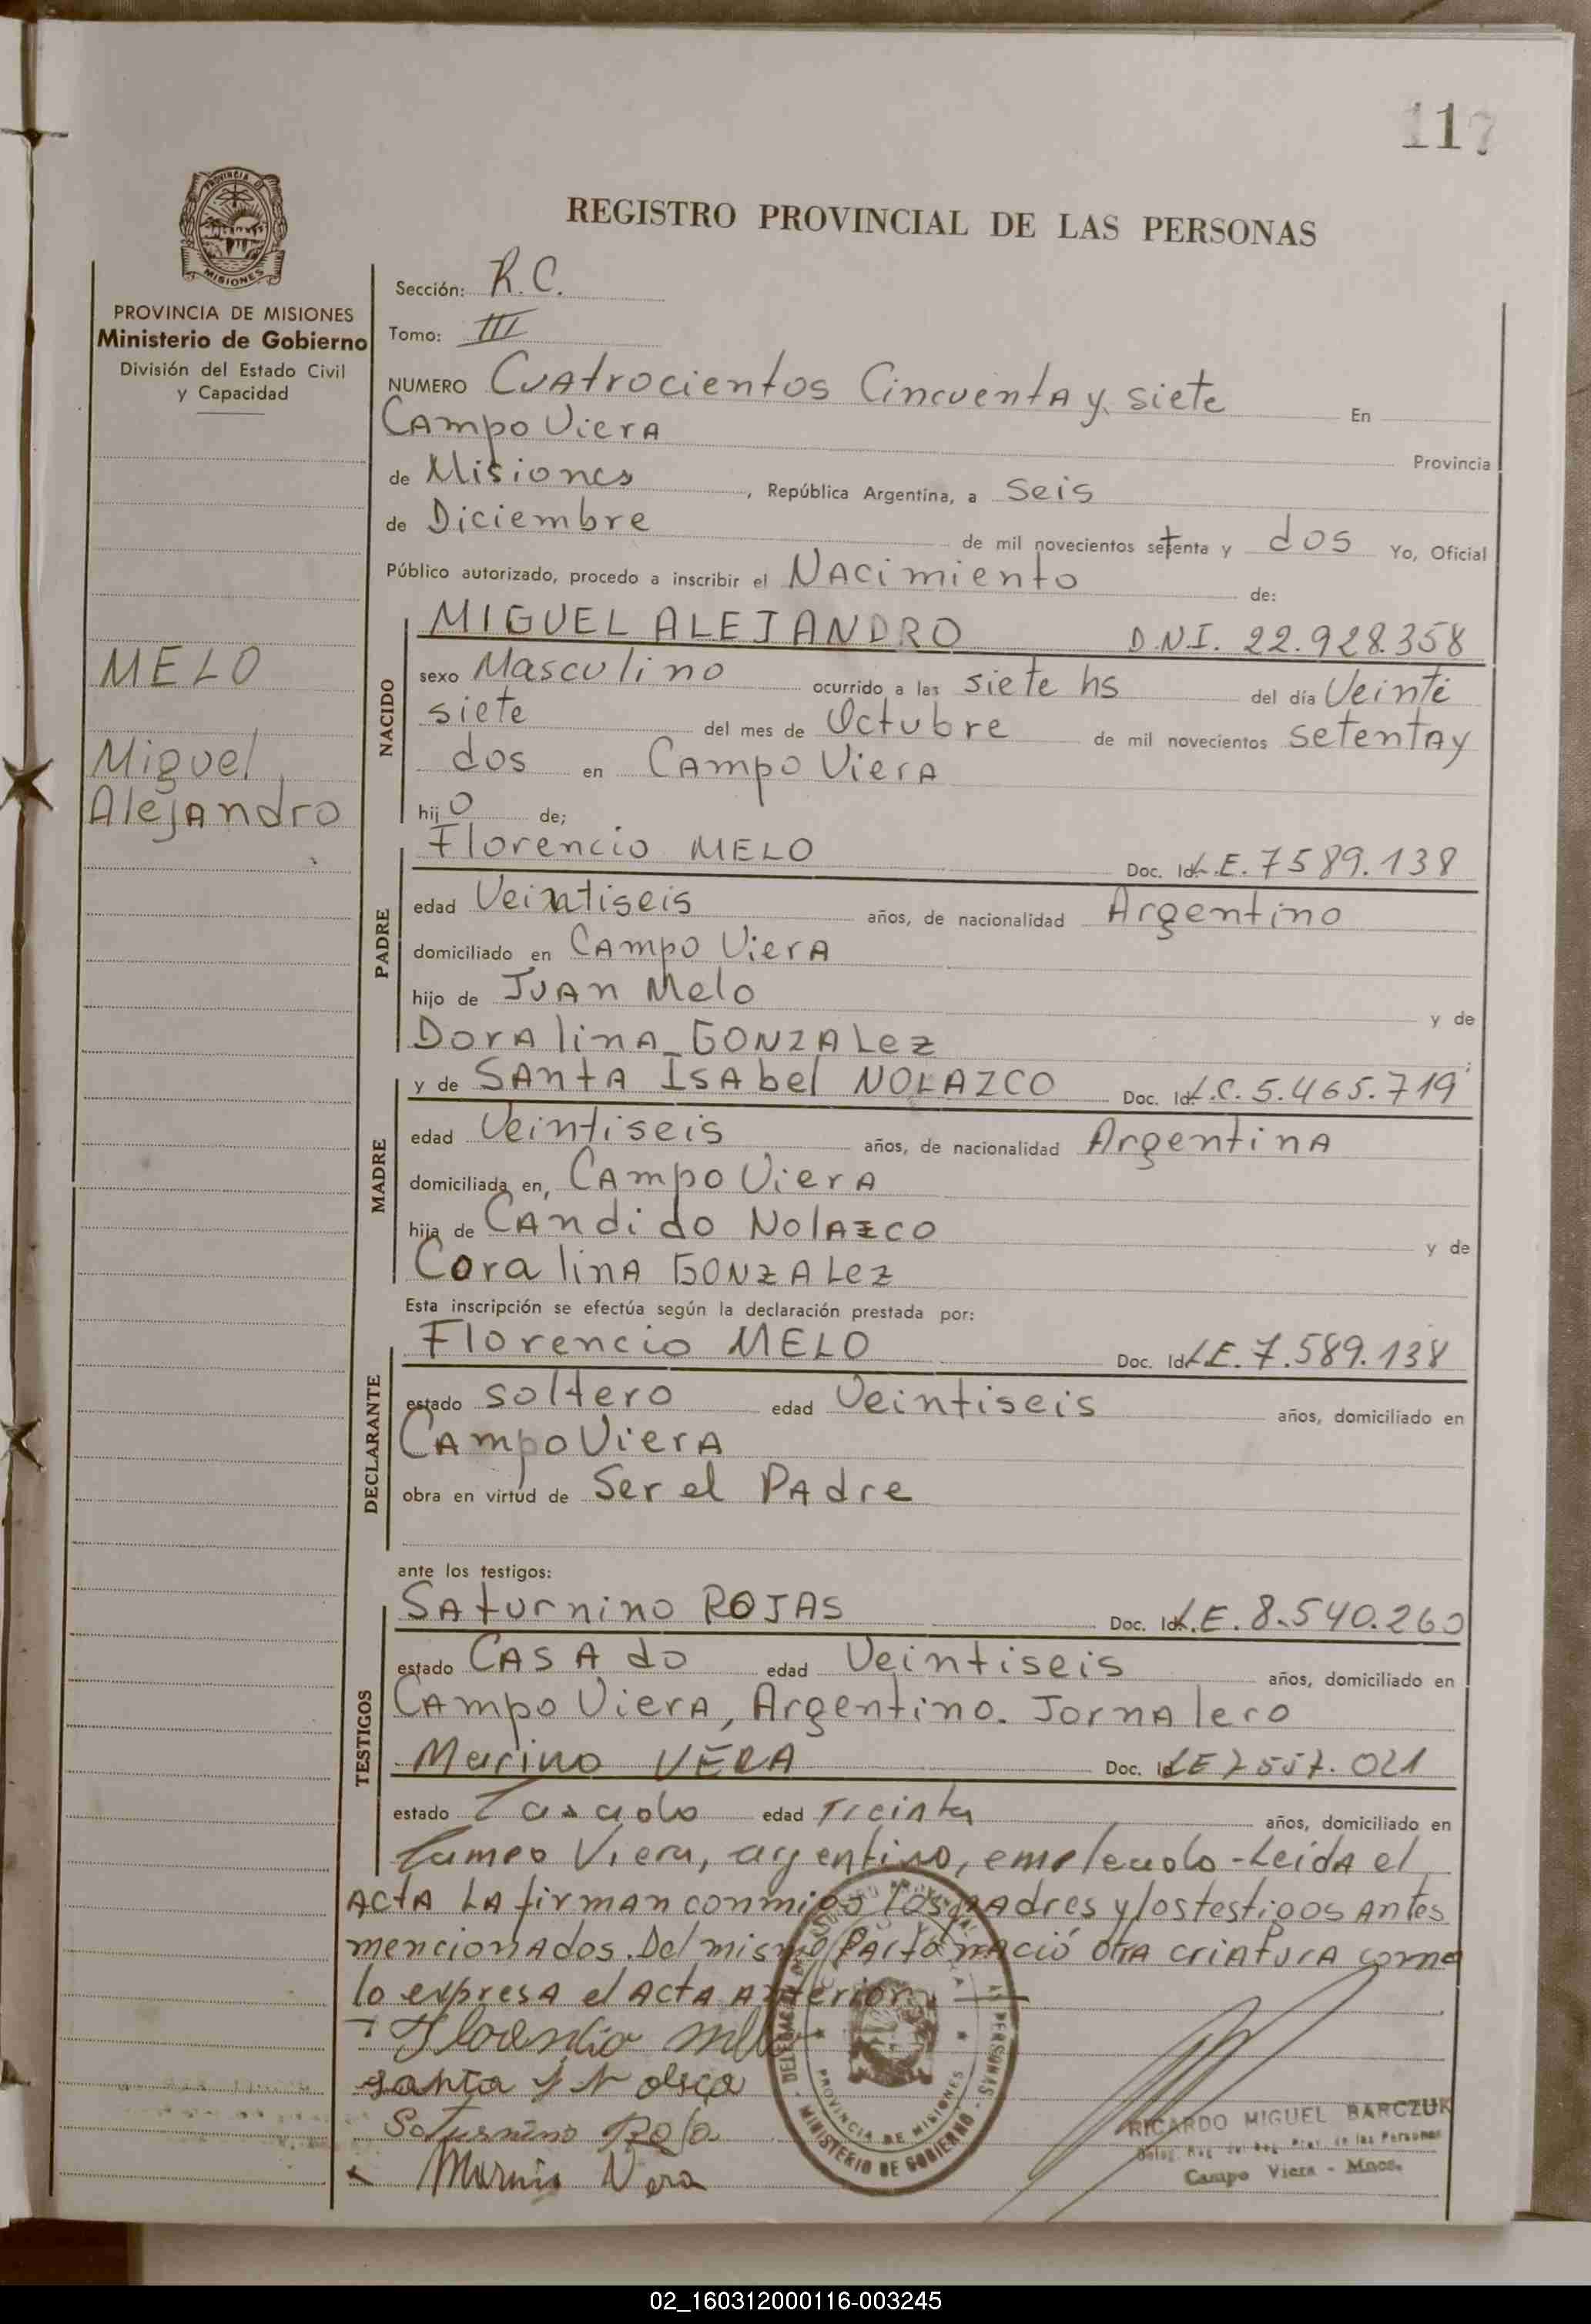 117
REGISTRO PROVINCIAL DE LAS PERSONAS
PROVINCIA DE MISIONES
Ministerio de Gobierno
División del Estado Civil
y Capacidad
MELO
Miguel
Alejandro
Sección: R.C.
Tomo: III
NUMERO Cuatrocientos Cincuenta y siete En
Campo Viera Provincia
de Misiones, República Argentina, a Seis
de Diciembre de mil novecientos setenta y dos Yo, Oficial
Público autorizado, procedo a inscribir el Nacimiento de:
NACIDO
MIGUEL ALEJANDRO D.N.I. 22.928.358
sexo Masculino ocurrido a las siete hs del día Veinte
siete del mes de Octubre de mil novecientos setenta y
dos en Campo Viera
hijo de;
PADRE
Florencio MELO Doc. Id. L.E. 7589.138
edad Veintiseis años, de nacionalidad Argentino
domiciliado en Campo Viera
hijo de Juan Melo y de
Doralina GONZALez
MADRE
y de Santa Isabel NOLAZCO Doc. Id. L.C. 5.465.719
edad Veintiseis años, de nacionalidad Argentina
domiciliada en, Campo Viera
hija de Candido Nolazco y de
Coralina GONZALez
Esta inscripción se efectúa según la declaración prestada por:
DECLARANTE
Florencio MELO Doc. Id. L.E. 7.589.138
estado soltero edad Veintiseis años, domiciliado en
Campo Viera
obra en virtud de Ser el Padre
ante los testigos:
TESTIGOS
Saturnino ROJAS Doc. Id. L.E. 8.540.260
estado Casado edad Veintiseis años, domiciliado en
Campo Viera, Argentino. Jornalero
Marino VERA Doc. Id. LE 7557.021
estado Casado edad Treinta años, domiciliado en
Campo Viera, argentino, empleado - Leida el
Acta la firman conmigo los padres y los testigos antes
mencionados. Del mismo Parto nació otra criatura como
lo expresa el acta anterior.
Florencio Melo
Santa
Saturnino Roja
Marino Vera
MINISTERIO DE GOBIERNO
PROVINCIA DE MISIONES
RICARDO MIGUEL BARCZUK
Campo Viera - Mnes.
02_160312000116-003245